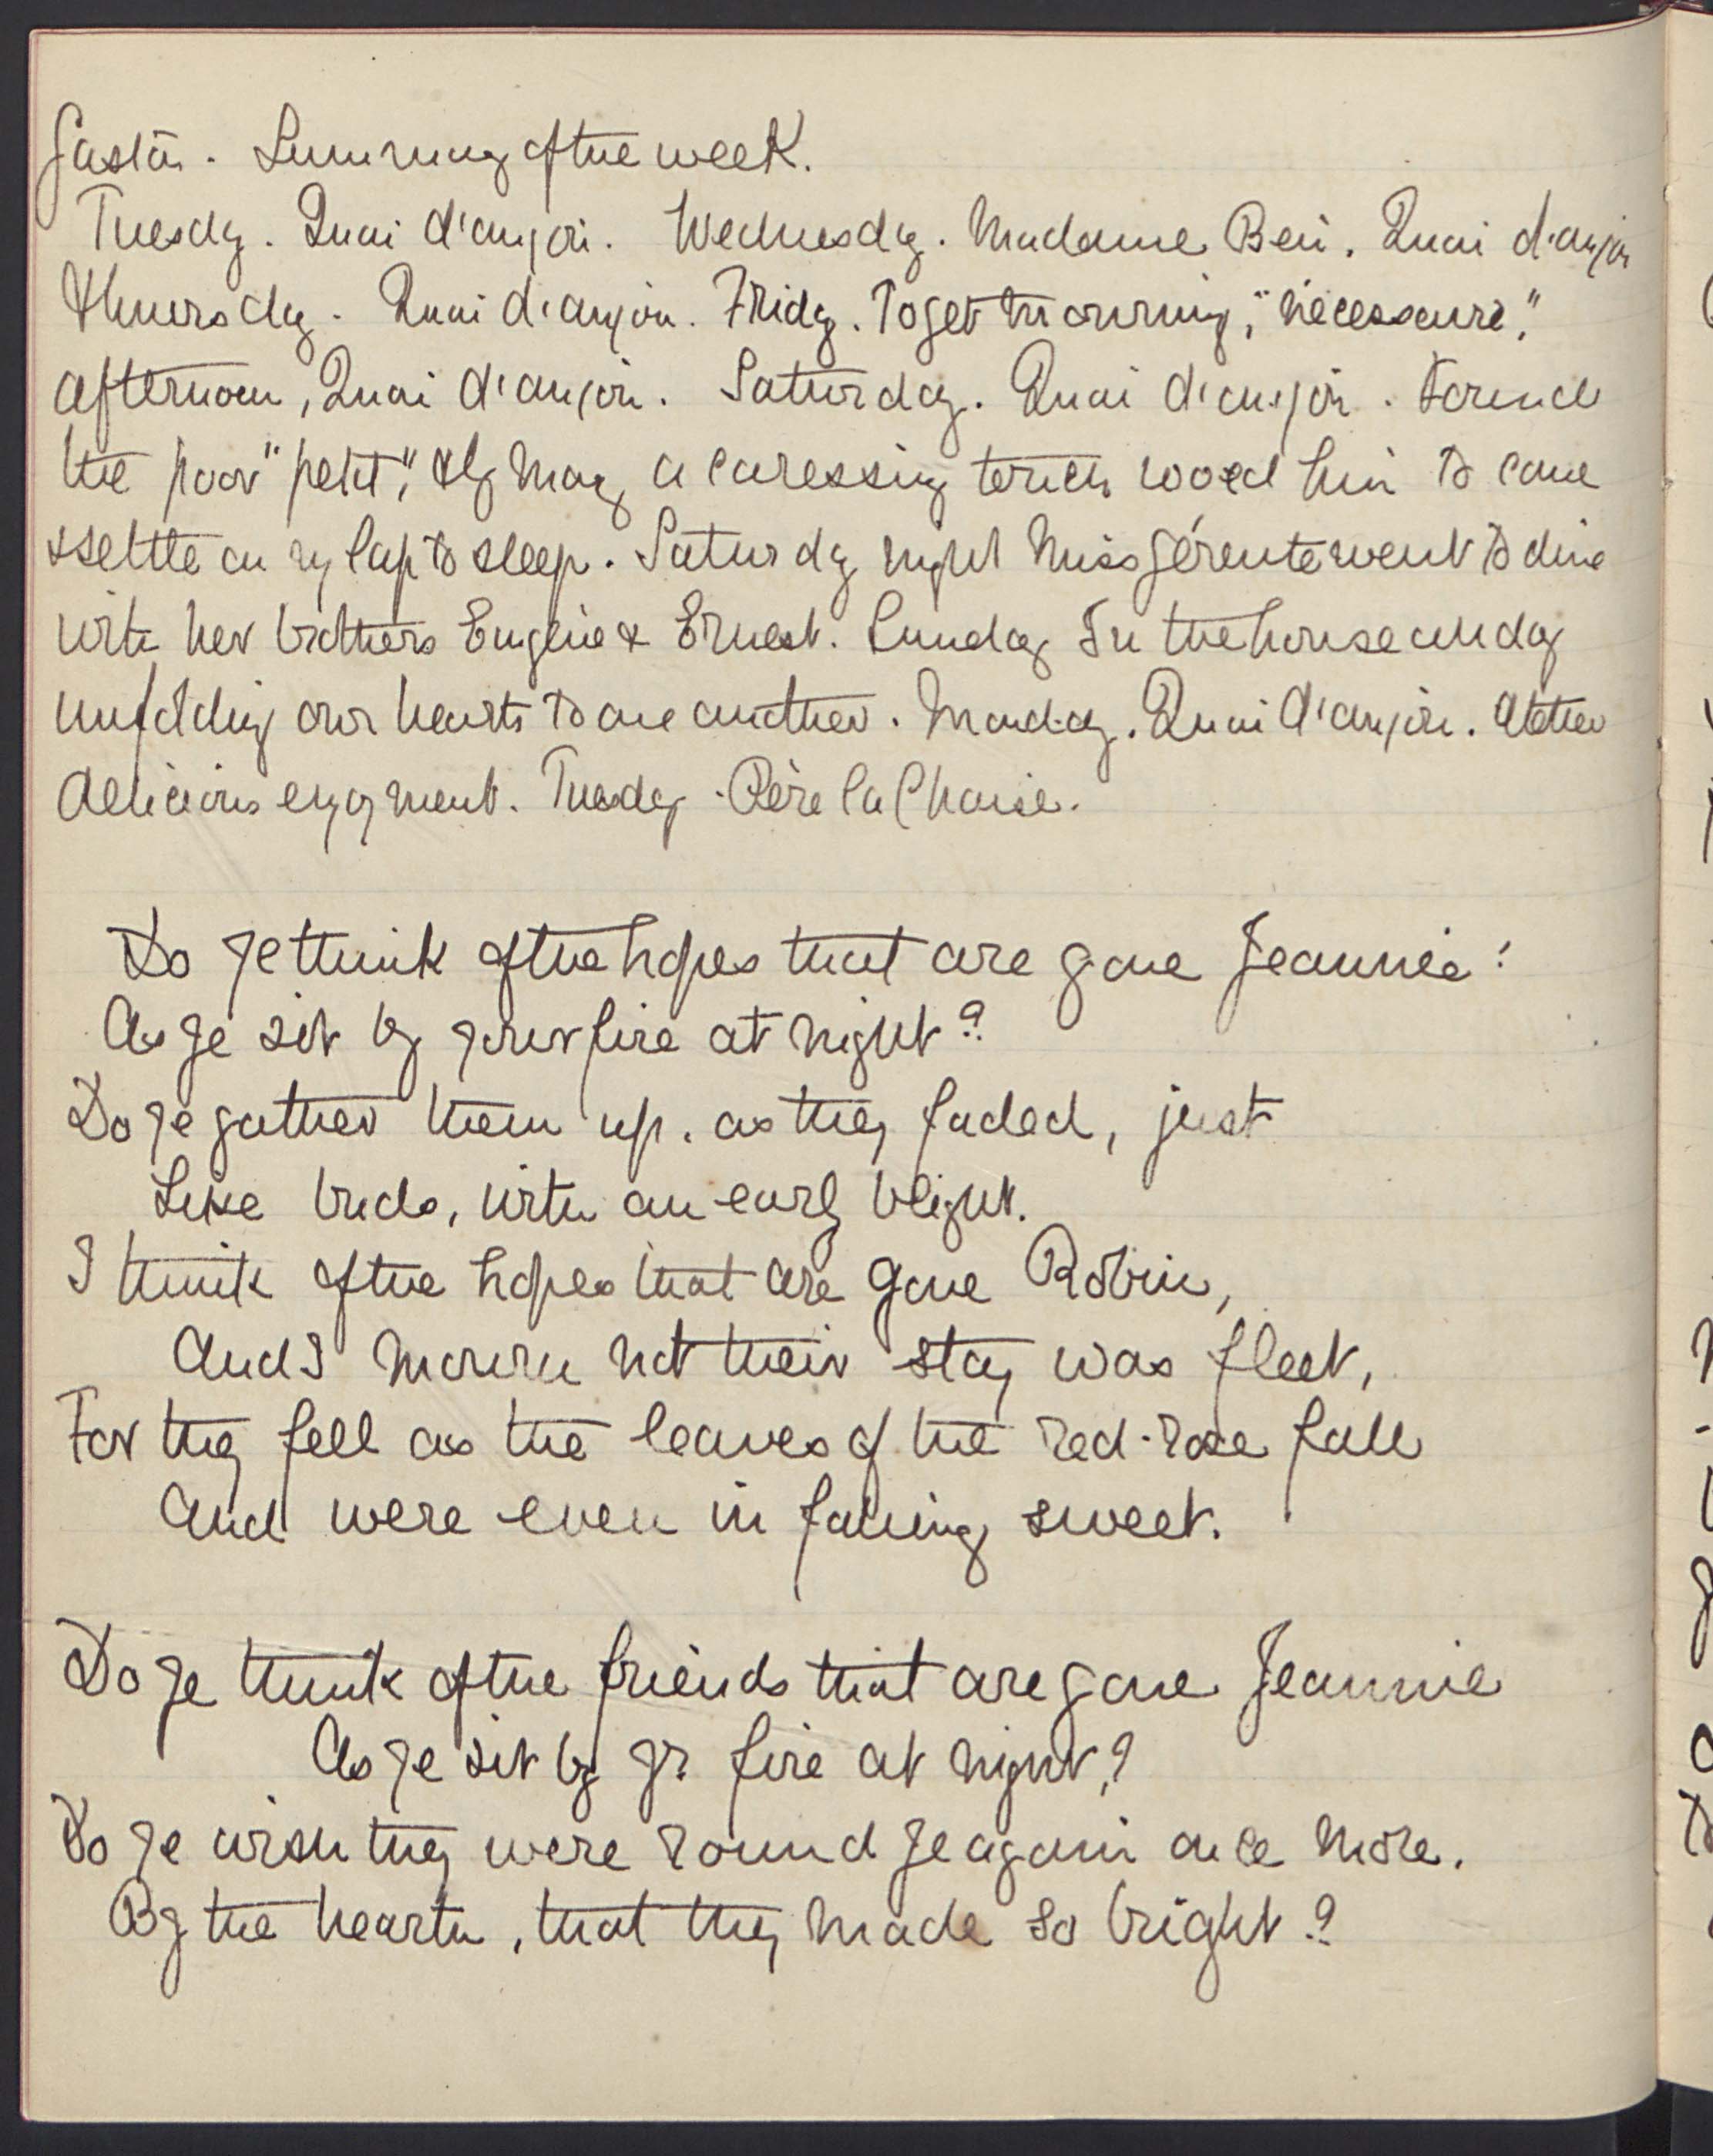 Gastõn. Summing of the week.
Tuesday. Quai d'anjou. Wednesday. Madame Ben. Quai d'anjou
Thuersday. Quai d'anjou. Friday. To get mourning, "nécessaire,"
afternoon, Quai d'anjou. Saturday. Quai d'anjou. Found
the poor "petit", & by many a caressing touch wooed him to come
& settle on my lap to sleep. Saturday night Miss Gérente went to dine
with her brothers Eugène & Ernest. Sunday In the house all day
unfolding our hearts to one another. Monday. Quai d'anjou.
delicious enjoyment. Tuesday. Père la Chaise.
Do ye think of the hopes that are gone Jeannie!
As ye sit by your fire at night?
Do ye gather them up. as they faded, just
Like buds, with an early blight.
I think of the hopes that are gone Robin,
And I mourn not their stay was fleet,
For they fell as the leaves of the red-rose fall
And were even in falling sweet.
Do ye think of the friends that are gone Jeannie
As ye sit by yr fire at night?
Do ye wish they were round ye again once more.
By the hearth, that they made so bright?